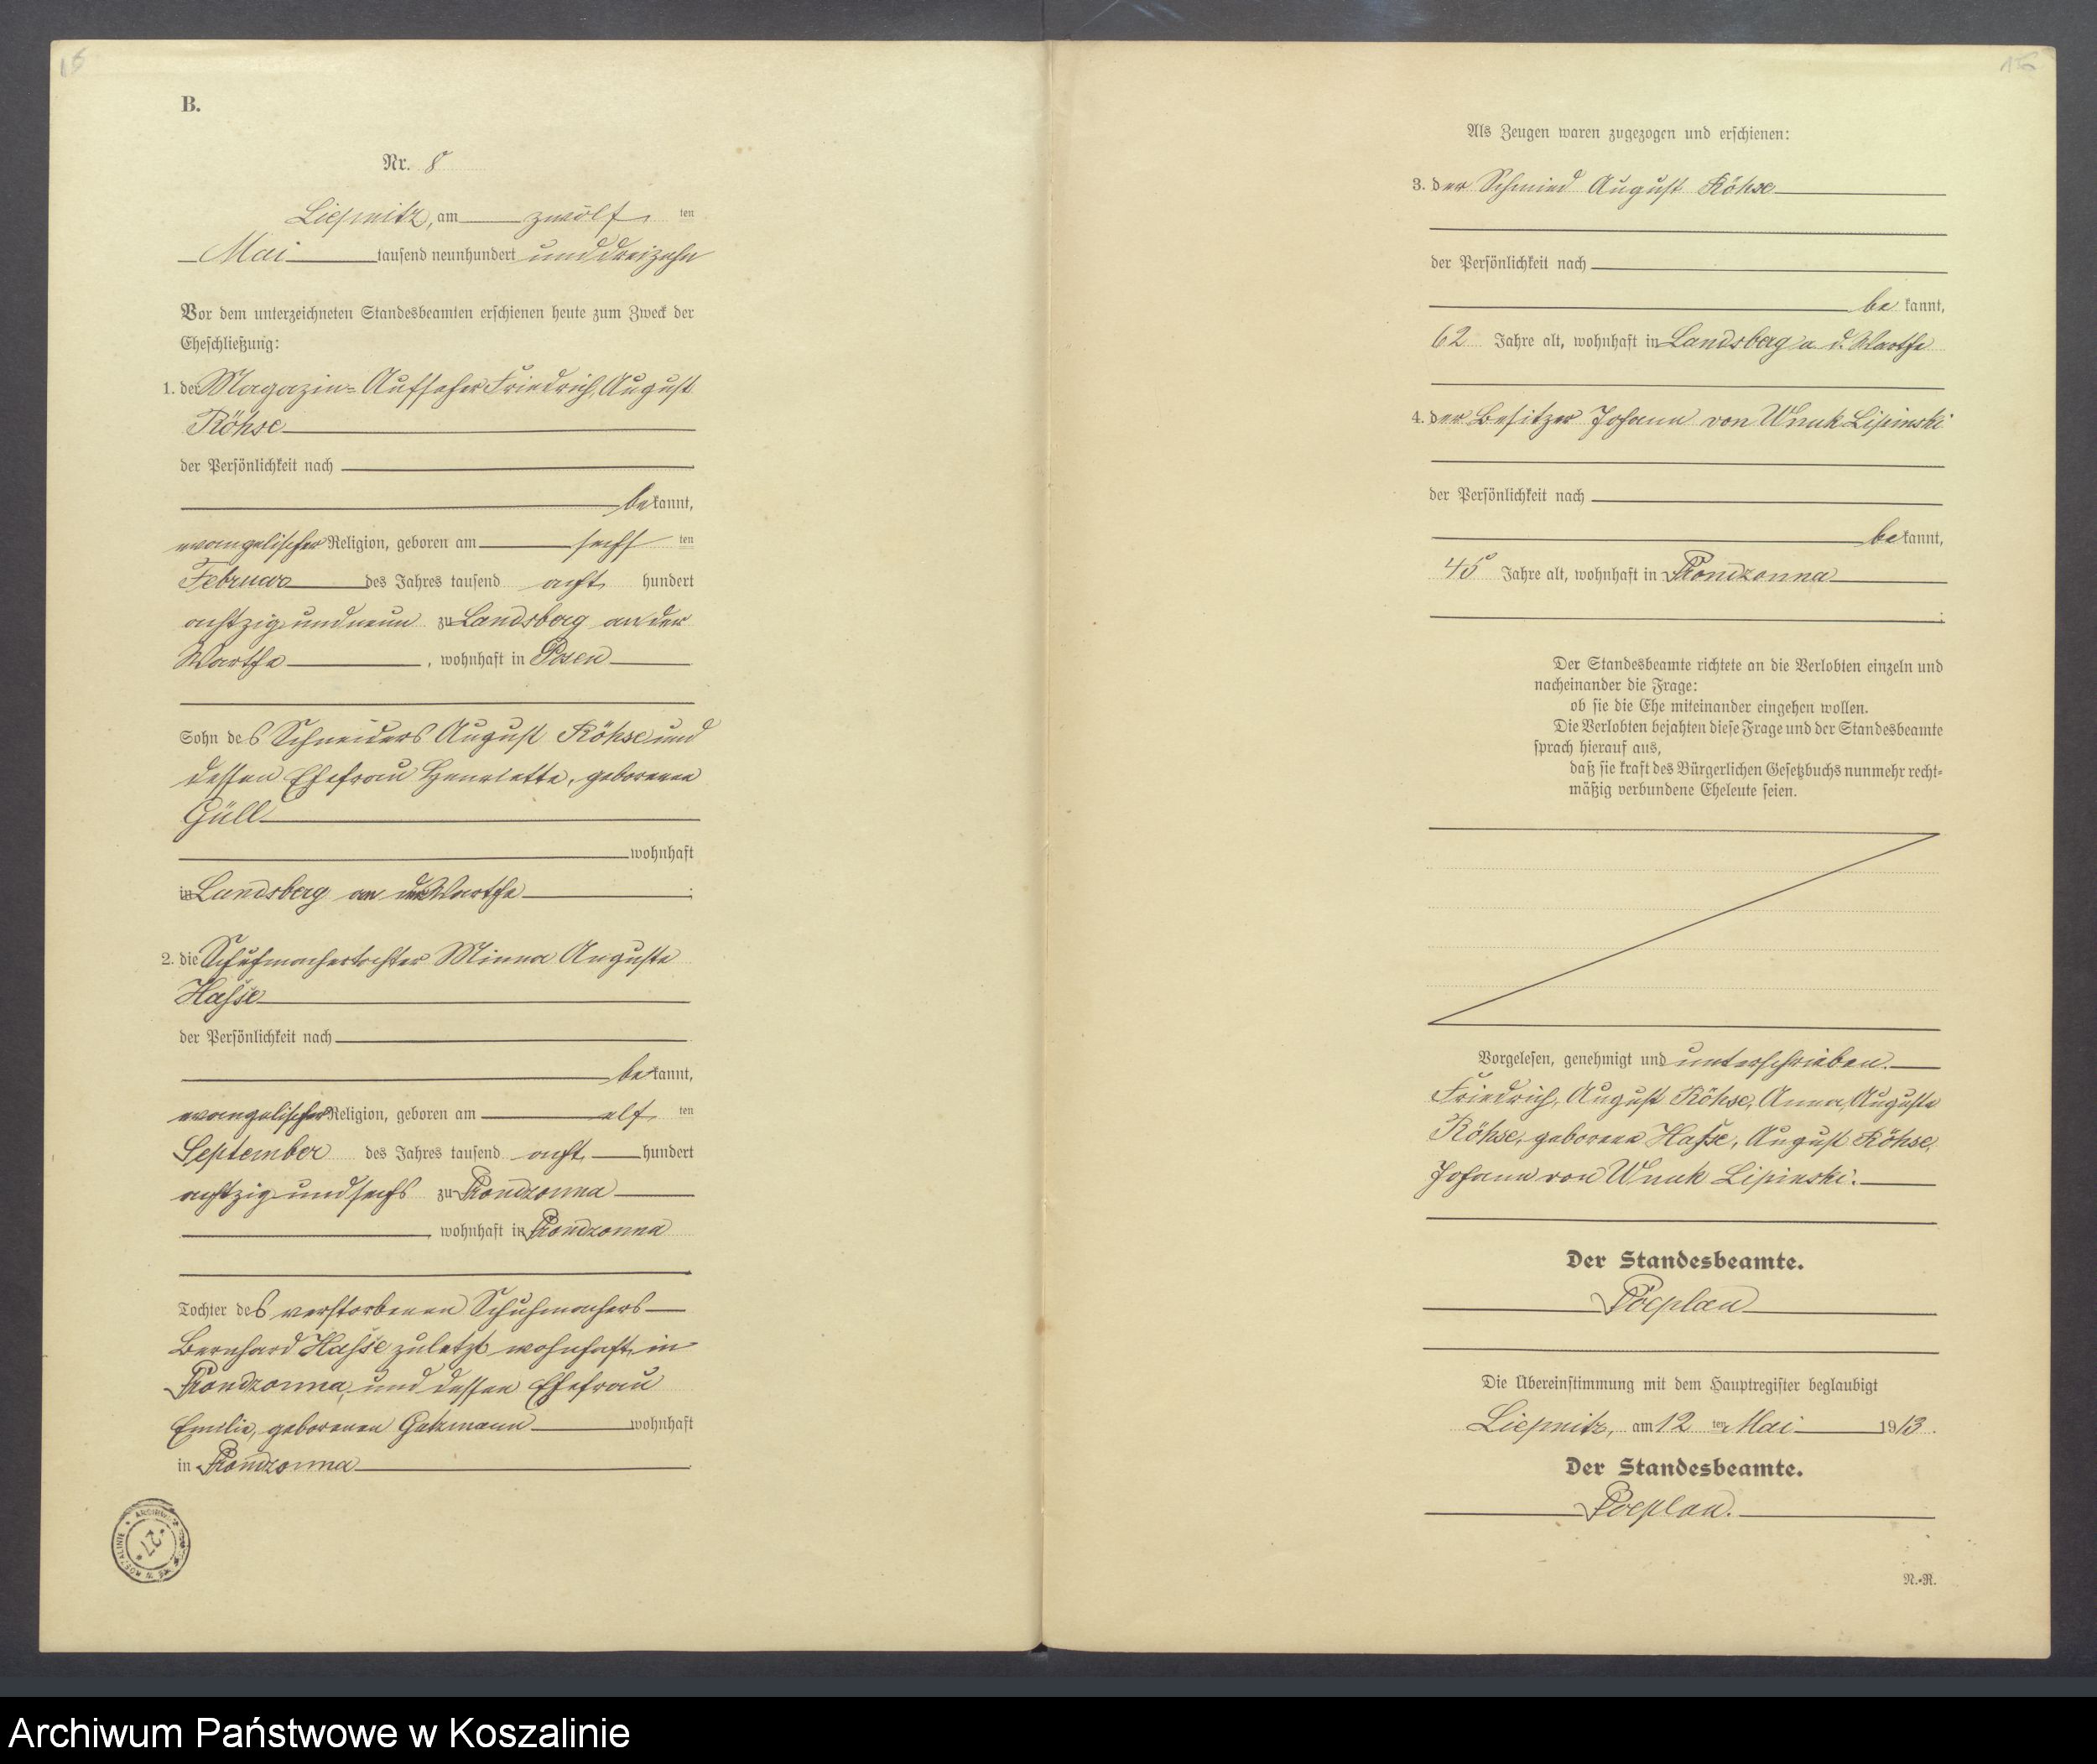 15
B.
Nr. 8
Liepnitz, am zwölf ten
Mai tausend neunhundert und dreizehn
Vor dem unterzeichneten Standesbeamten erschienen heute zum Zweck der
Eheschließung:
1. der Magazin-Aufseher Friedrich August
Röhse
der Persönlichkeit nach
be kannt,
evangelischer Religion, geboren am sechs ten
Februar des Jahres tausend acht hundert
achtzig und neun zu Landsberg an der
Warthe, wohnhaft in Posen
Sohn des Schneiders August Röhse und
dessen Ehefrau Henriette, geborenen
Güll
wohnhaft
in Landsberg an der Warthe.
2. die Schuhmachertochter Minna Auguste
Hasse
der Persönlichkeit nach
be kannt,
evangelischer Religion, geboren am elf ten
September des Jahres tausend acht hundert
achtzig und sechs zu Prondzonna
, wohnhaft in Prondzonna
Tochter des verstorbenen Schuhmachers
Bernhard Hasse zuletzt wohnhaft in
Prondzonna und dessen Ehefrau
Emilie, geborenen Gatzmann wohnhaft
in Prondzonna
ARCHIWUM
KOSZALINIE
27
Als Zeugen waren zugezogen und erschienen:
3. der Schmied August Röhse
der Persönlichkeit nach
be kannt,
62 Jahre alt, wohnhaft in Landsberg a. d. Warthe
4. der Besitzer Johann von Wnuk Lipinski
der Persönlichkeit nach
be kannt,
45 Jahre alt, wohnhaft in Prondzonna
Der Standesbeamte richtete an die Verlobten einzeln und
nacheinander die Frage:
ob sie die Ehe miteinander eingehen wollen.
Die Verlobten bejahten diese Frage und der Standesbeamte
sprach hierauf aus,
daß sie kraft des Bürgerlichen Gesetzbuchs nunmehr recht-
mäßig verbundene Eheleute seien.
Vorgelesen, genehmigt und unterschrieben.
Friedrich, August Röhse, Anna, Auguste
Röhse, geborene Hasse, August Röhse,
Johann von Wnuk Lipinski.
Der Standesbeamte.
Poeplau
Die Übereinstimmung mit dem Hauptregister beglaubigt
Liepnitz, am 12 ten Mai 1913.
Der Standesbeamte.
Poeplau.
N.-R.
Archiwum Państwowe w Koszalinie